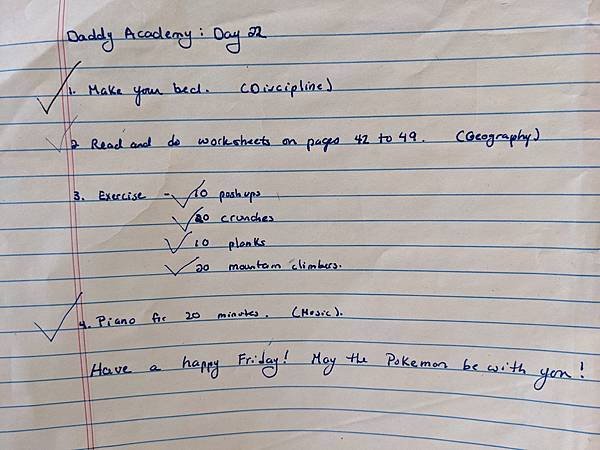 Daddy Academy: Day 22
1. Make your bed. (Discipline)
2 Read and do worksheets on pages 42 to 49. (Geography)
3. Exercise - 10 pushups
20 crunches
10 planks
20 mountain climbers.
4. Piano for 20 minutes. (Music).
Have a happy Friday! May the Pokemon be with you!